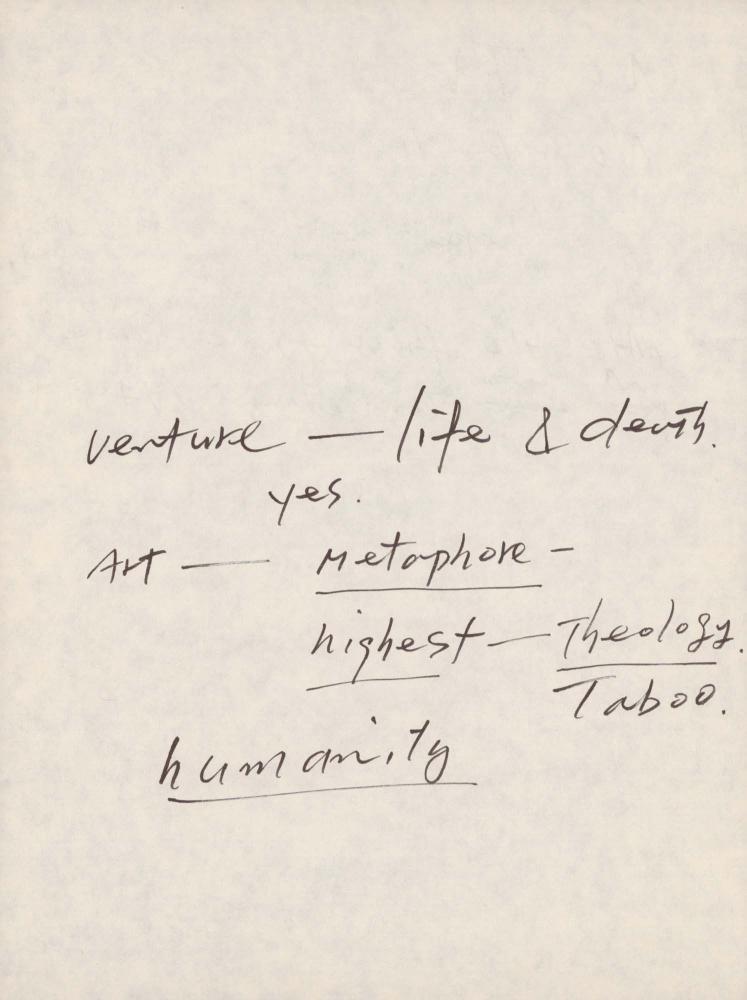 venture — life & death.
yes.
Art — Metaphore -
highest — Theology.
Taboo.
humanity